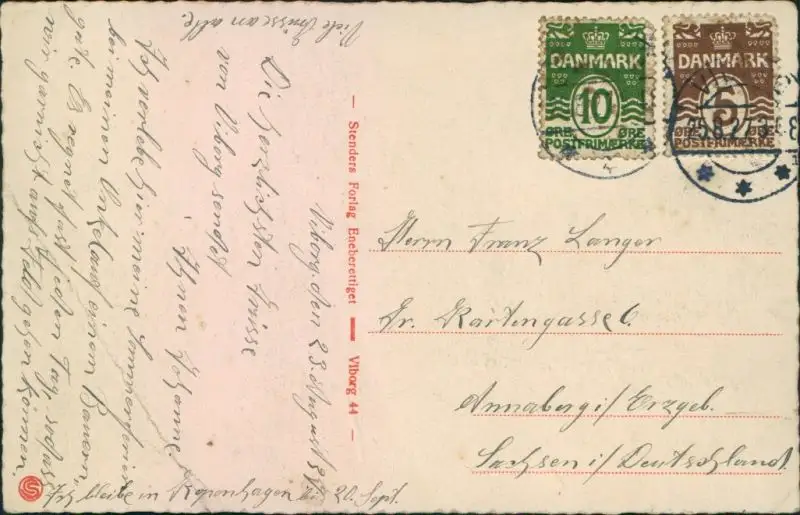 DANMARK
10
ØRE ØRE
POSTFRIMÆRKE
DANMARK
5
ØRE ØRE
POSTFRIMÆRKE
25.8.27.3
— Stenders Forlag Eneberettiget — Viborg 44 —
Herrn Franz Langer
Gr. Kartengasse 6.
Annaberg i/ Erzgeb.
Sachsen i/ Deutschland.
Viborg, den 23. August
Die herzlichsten Grüsse
von Viborg sendet
Ihnen Johanne.
Ich verlebe hier meine Sommerferien
bei meinen Onkel und einen Bauern
gute. Es regnet fast jeden Tag, sodass
wir garnicht aufs Feld gehen können.
Ich bleibe in Kopenhagen bis 20. Sept.
Viele Grüsse an alle.